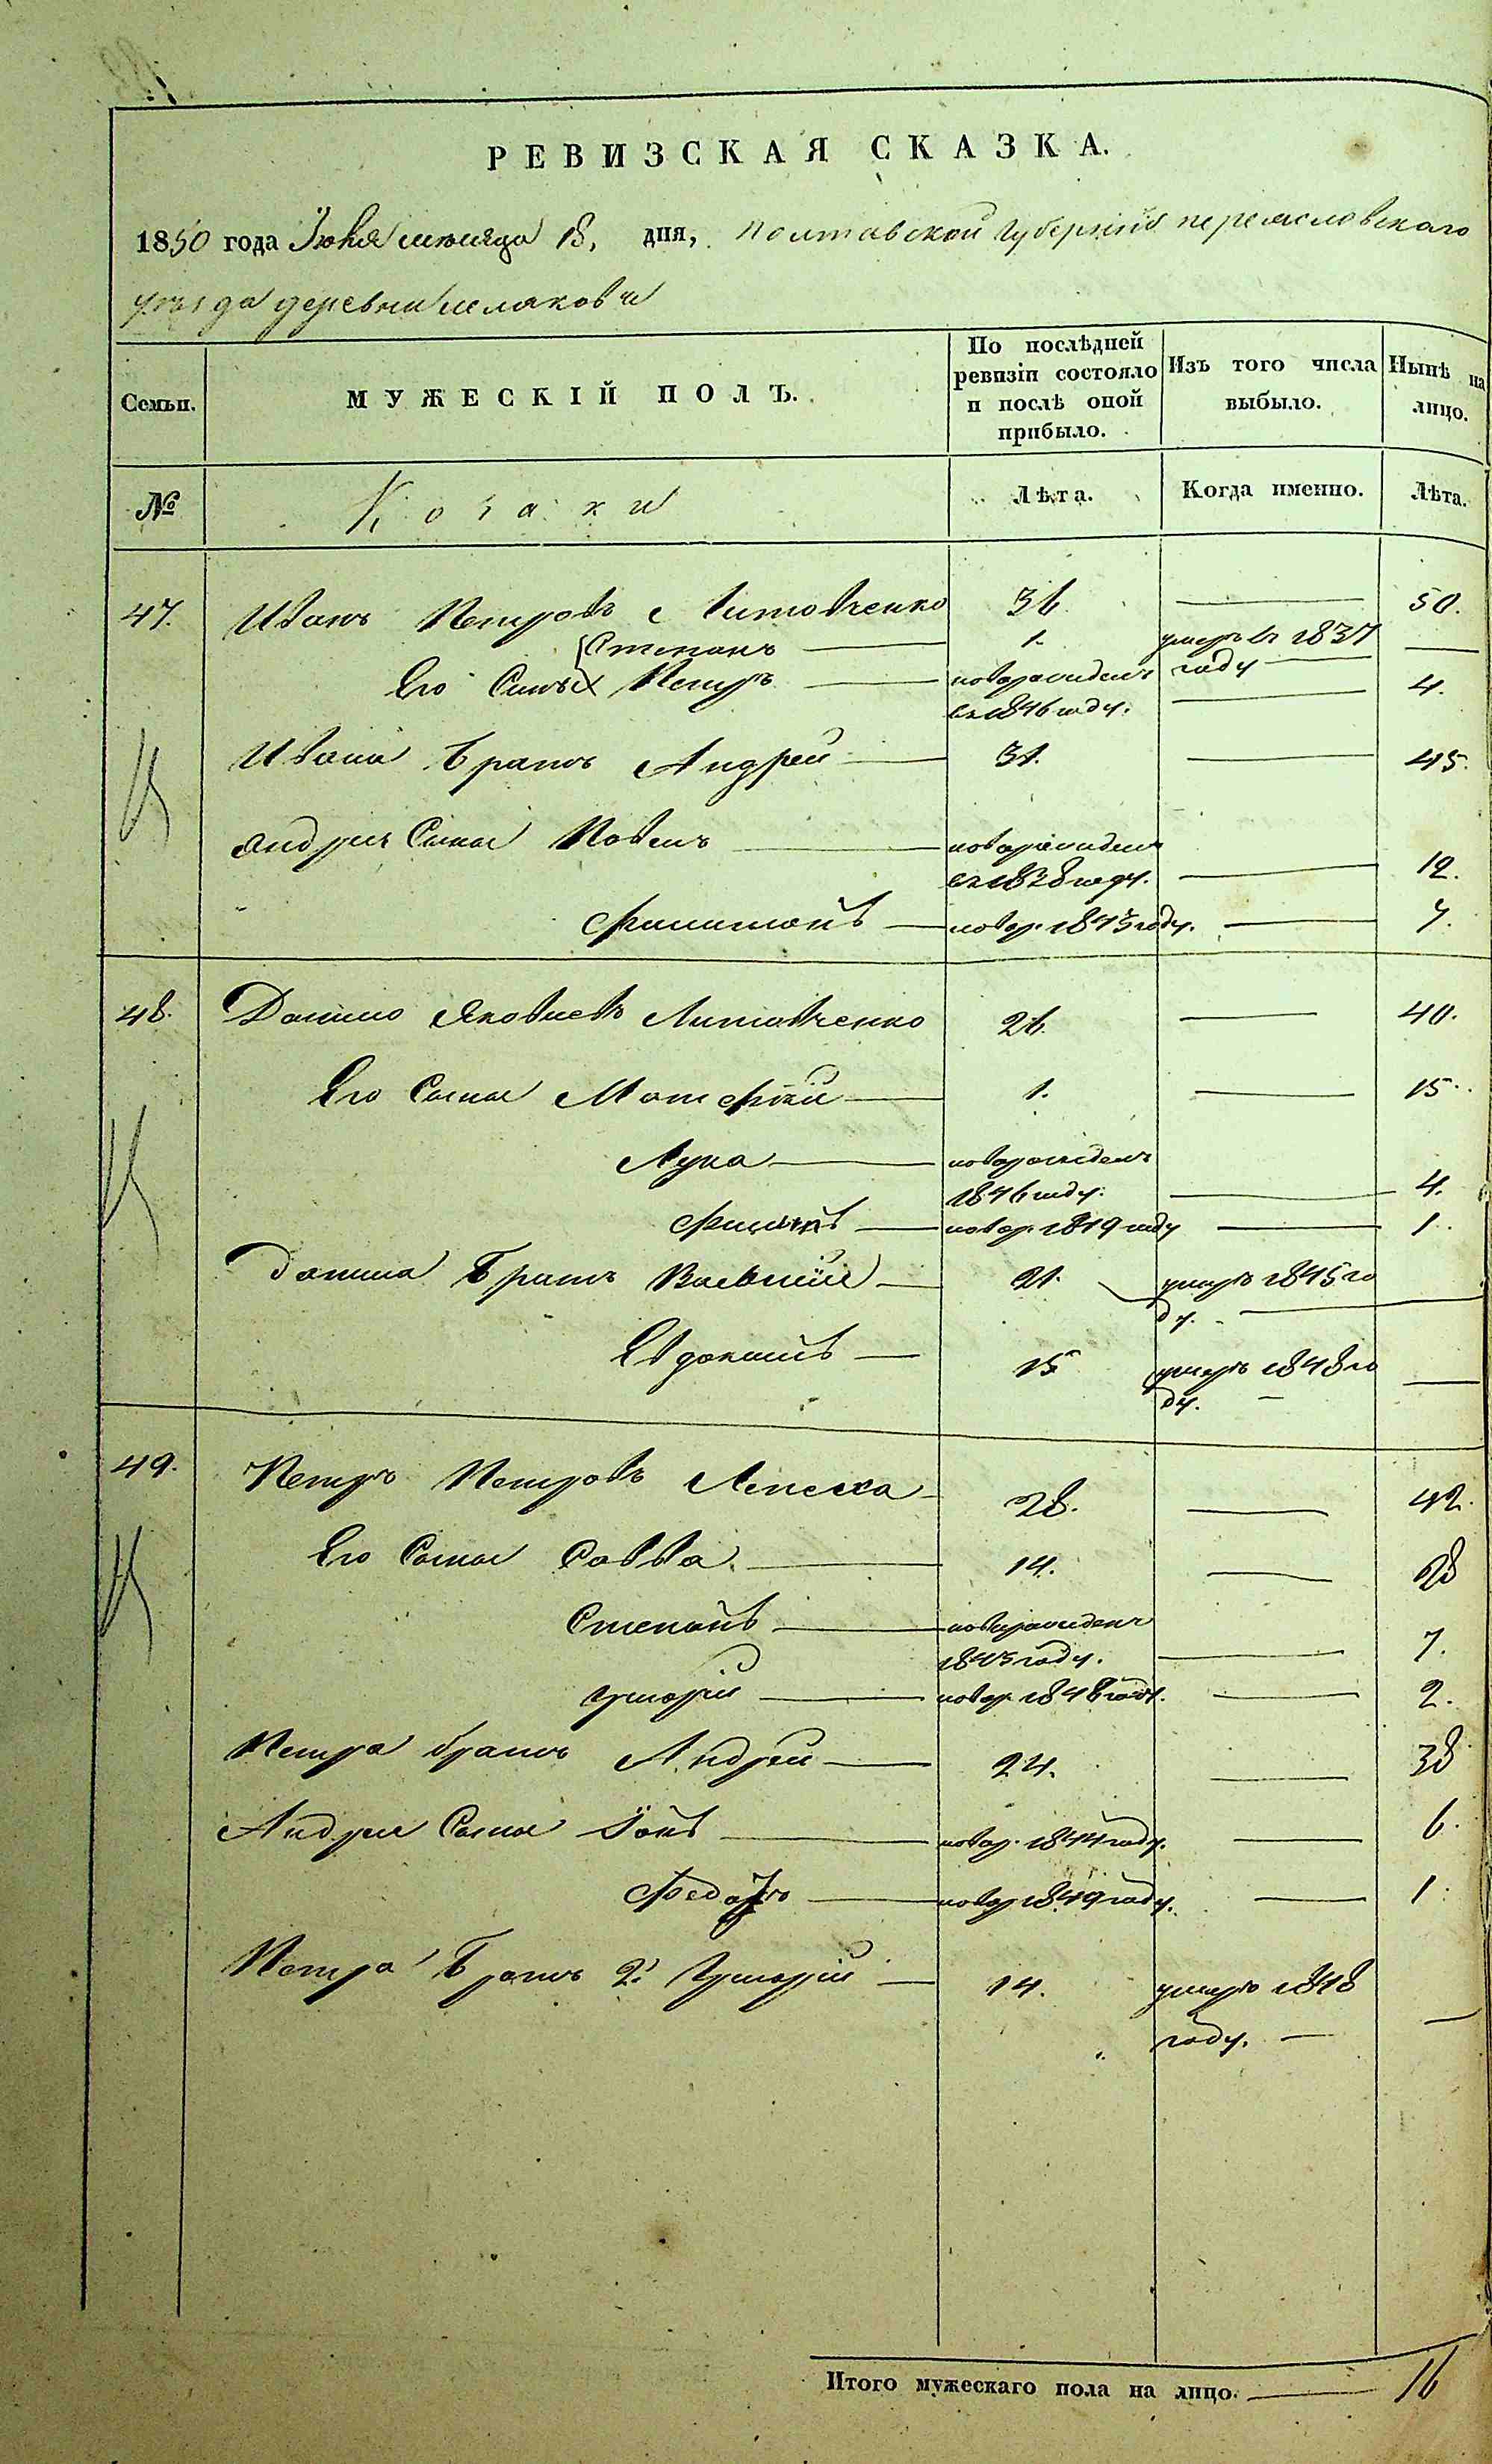 РЕВИЗСКАЯ СКАЗКА.
1850 года Іюня месяца 18, дня, Полтавской губерніи переясловскаго
уезда деревни
Семьи. МУЖЕСКІЙ ПОЛЪ. По послѣдней ревизіи состояло и послѣ оной прибыло. Изъ того числа выбыло. Нынѣ на лицо.
№ Козаки Лѣта. Когда именно. Лѣта.
47. Иванъ Петровъ Литовченко 36. 50.
Степанъ 1. умеръ въ 1837 году
Его Сыны Петръ новорожденъ въ 1846 году. 4.
Ивана Братъ Андрей 31. 45.
Андрея Сыны Павелъ новорожденъ 12.
Филимонъ новор. 1843 году. 7.
48. Данило Яковлевъ Литовченко 26. 40.
Его Сыны Матфій 1. 15.
Лука новорожденъ 1846 году. 4.
новор. 1849 году 1.
Данила Братъ Василій 21. умеръ 1845 году.
Евдокимъ 15 умеръ 1848 году.
49. Петръ Петровъ 28. 42.
Его Сыны Савва 14. 28
Степанъ новорожденъ 1843 году. 7.
Григорій новор. 1848 году. 2.
Петра братъ Андрей 24. 38
Андрея Сыны новор. 1844 году. 6.
Федоръ новор 1849 году. 1.
Петра Братъ 2й Григорій 14. умеръ 1848
году.
Итого мужескаго пола на лицо. 16